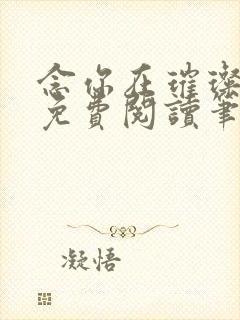 念你在璀璨
免費閱讀筆
凝悟